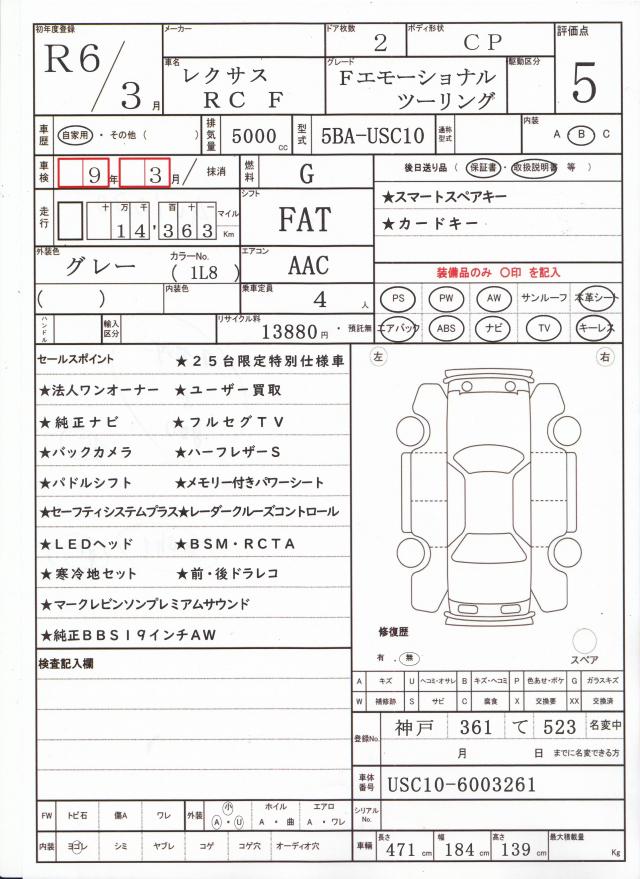 初年度登録 メーカー ドア枚数 ボディ形状 評価点
R6/3月 2 CP 5
車名 グレード 駆動区分
レクサス RC F Fエモーショナル ツーリング
車歴 自家用・その他( ) 排気量 5000cc 型式 5BA-USC10 通称型式 内装 A・B C
車検 9年 3月/ 抹消 燃料 G 後日送り品(保証書・取扱説明書 等)
★スマートスペアキー
走行 十万千百十一 14,363 マイル Km シフト FAT ★カードキー
外装色 グレー カラーNo. (1L8) エアコン AAC
装備品のみ 〇印 を記入
( ) 内装色 乗車定員 4人
PS PW AW サンルーフ 本革シート
ハンドル 輸入区分 リサイクル料 13880円・預託無
エアバック ABS ナビ TV キーレス
セールスポイント ★25台限定特別仕様車
★法人ワンオーナー ★ユーザー買取
★純正ナビ ★フルセグTV
★バックカメラ ★ハーフレザーS
★パドルシフト ★メモリー付きパワーシート
★セーフティシステムプラス★レーダークルーズコントロール
★LEDヘッド ★BSM・RCTA
★寒冷地セット ★前・後ドラレコ
★マークレビンソンプレミアムサウンド
★純正BBS19インチAW
左 右
修復歴
有．無 スペア
検査記入欄
A キズ U ヘコミ・オサレ B キズ・ヘコミ P 色あせ・ボケ G ガラスキズ
W 補修跡 S サビ C 腐食 X 交換要 XX 交換済
登録No. 神戸 361 て 523 名変中
月 日 までに名変できる方
車体番号 USC10-6003261
FW トビ石 傷A ワレ 外装 小 A・U ホイル A・曲 エアロ A・ワレ シリアルNo.
内装 ヨゴレ シミ ヤブレ コゲ コゲ穴 オーディオ穴 車輛 長さ 471cm 幅 184cm 高さ 139cm 最大積載量 Kg